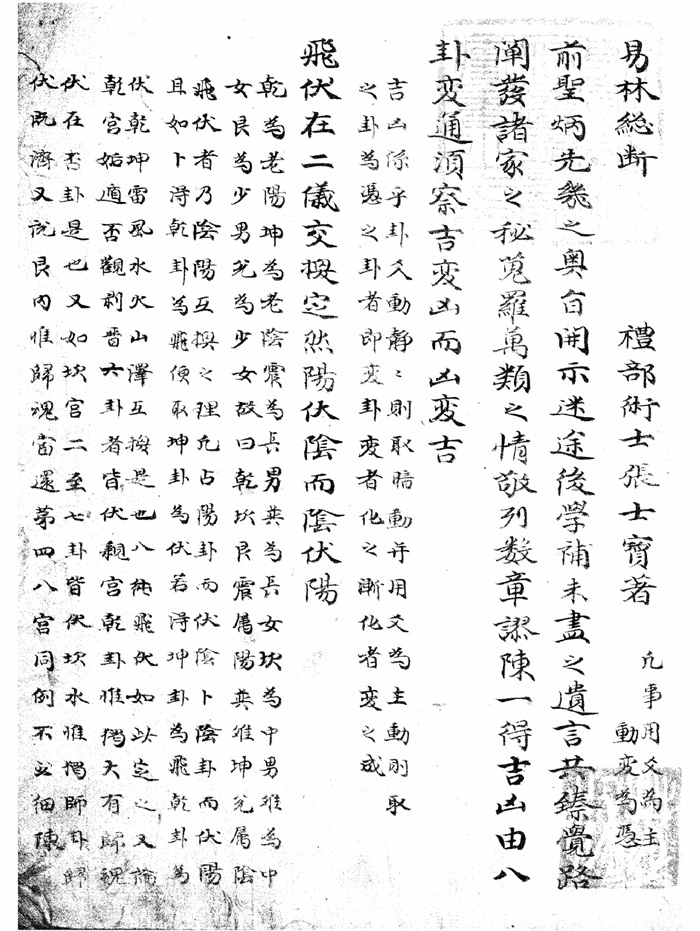 易林総断　禮部術士張士寶著　凡事用爻為主
動変為憑
前聖炳先幾之奥旨開示迷途後學補未盡之遺言共臻覺路
闡發諸家之秘蒐羅萬類之情敬列数章謬陳一得吉凶由八
卦変通須察吉変凶而凶変吉
吉凶係乎卦爻動静〻則取暗動并用爻為主動則取
之卦為憑之卦者即変卦変者化之漸化者変之成
飛伏在二儀交換定然陽伏陰而陰伏陽
乾為老陽坤為老陰震為長男巽為長女坎為中男離為中
女艮為少男兊為少女故曰乾坎艮震属陽巽離坤兊属陰
飛伏者乃陰陽互換之理凢占陽卦而伏陰卜陰卦而伏陽
且如卜淂乾卦為飛便取坤卦為伏若淂坤卦為飛乾卦為
伏乾坤雷風水火山澤互換是也八純飛伏如此定之又論
乾宮姤遁否觀剥晋六卦者皆伏親宮乾卦惟獨大有歸魂
伏在否卦是也又如坎宮二至七卦皆伏坎水惟獨師卦歸
伏既濟又説艮内惟歸魂宮還第四八宮同例不必細陳